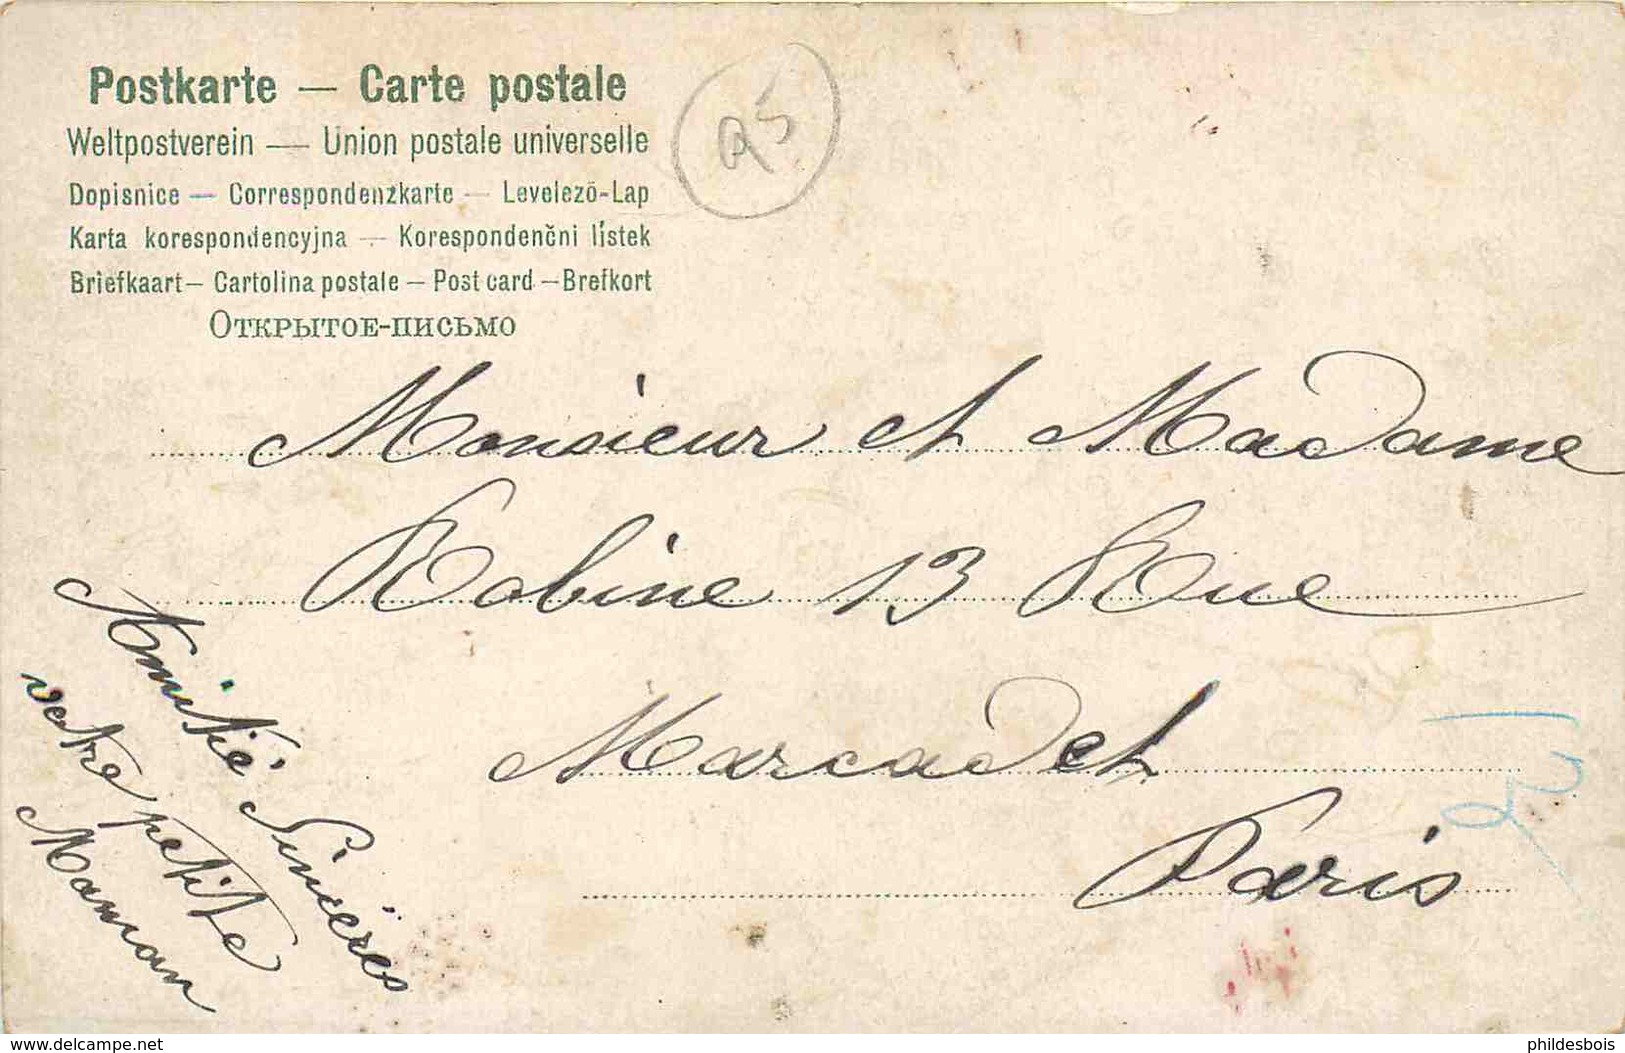 Postkarte — Carte postale
Weltpostverein — Union postale universelle
Dopisnice — Correspondenzkarte — Levelezö-Lap
Karta korespondencyjna — Korespondenčni lístek
Briefkaart — Cartolina postale — Post card — Brefkort
Открытое-письмо
Monsieur et Madame
Robine 13 Rue
Marcadet
Paris
Amitié Sincères
votre petite
Maman
www.delcampe.net
phildesbois